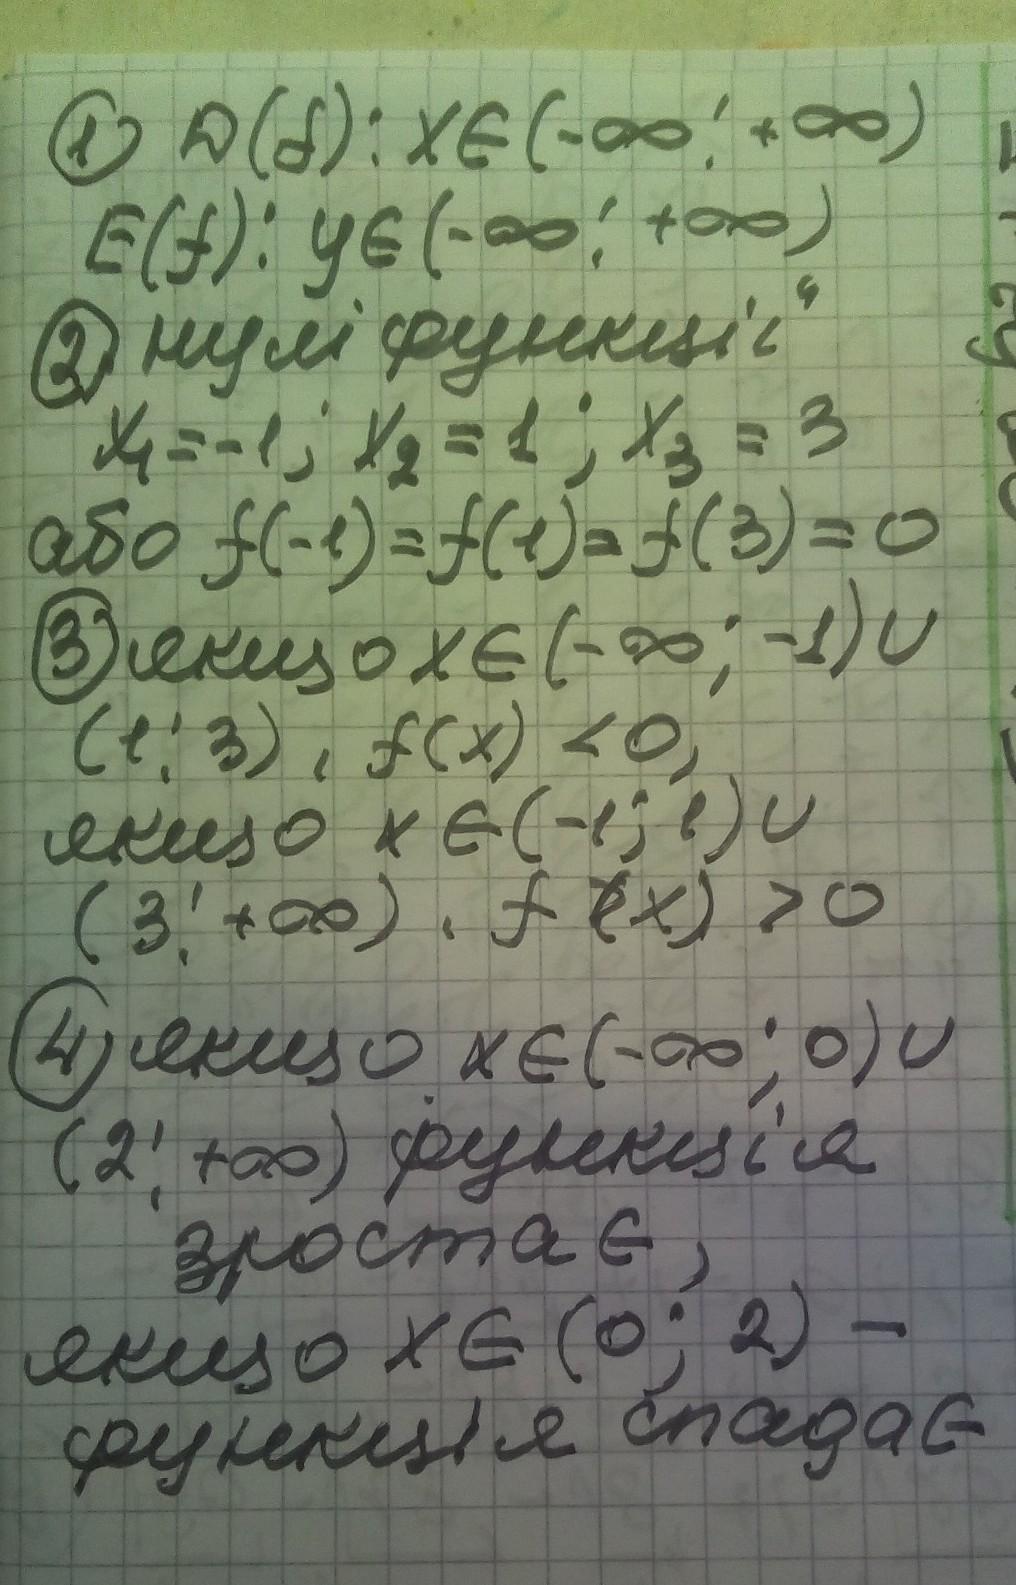 ① D(f): x∈(-∞; +∞)
E(f): y∈(-∞; +∞)
② нулі функції
x₁=-1; x₂=1; x₃=3
або f(-1)=f(1)=f(3)=0
③ якщо x∈(-∞; -1)∪
(1; 3), f(x) <0,
якщо x∈(-1; 1)∪
(3; +∞), f(x) >0
④ якщо x∈(-∞; 0)∪
(2; +∞) функція
зростає,
якщо x∈(0; 2) –
функція спадає